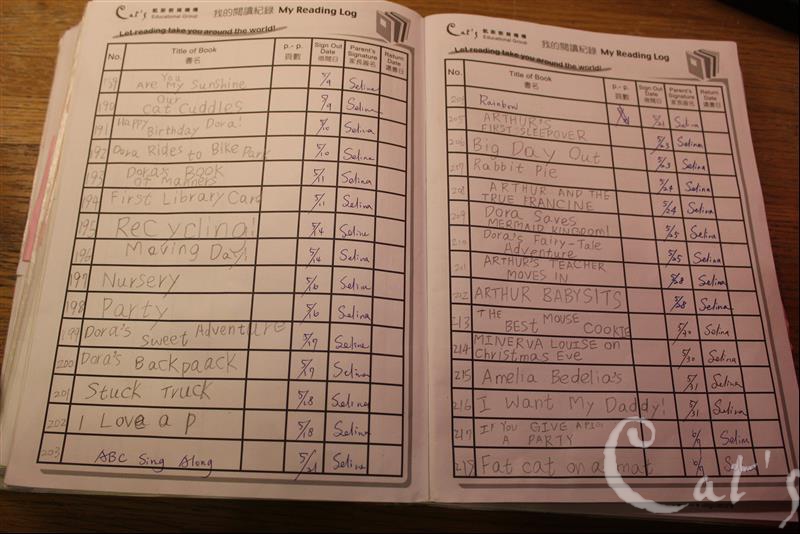 Cat's 凱斯教育機構
Educational Group
我的閱讀紀錄 My Reading Log
Let reading take you around the world!
No. Title of Book 書名 p.-p. 頁數 Sign Out Date 借閱日 Parent's Signature 家長簽名 Return Date 還書日
189 You Are My Sunshine 5/9 Selina
190 Our Cat Cuddles 5/9 Selina
191 Happy Birthday Dora! 5/10 Selina
192 Dora Rides to Bike Park 5/10 Selina
193 Dora's BOOK OF MANNERS 5/11 Selina
194 First Library Card 5/11 Selina
195 Recycling! 5/14 Selina
196 Moving Day! 5/14 Selina
197 Nursery 5/16 Selina
198 Party 5/16 Selina
199 Dora's Sweet Adventure 5/17 Selina
200 Dora's Backpaack 5/17 Selina
201 Stuck Truck 5/18 Selina
202 I Love a p 5/18 Selina
203 ABC Sing Along 5/21 Selina
Cat's 凱斯教育機構
Educational Group
我的閱讀紀錄 My Reading Log
Let reading take you around the world!
No. Title of Book 書名 p.-p. 頁數 Sign Out Date 借閱日 Parent's Signature 家長簽名 Return Date 還書日
Rainbow
205 ARTHUR'S FIRST SLEEPOVER 5/21 Selina
206 Big Day Out 5/23 Selina
207 Rabbit Pie 5/23 Selina
208 ARTHUR AND THE TRUE FRANCINE 5/24 Selina
209 Dora Saves MERMAID KINGDOM! 5/24 Selina
210 Dora's Fairy-Tale Adventure 5/25 Selina
211 ARTHUR'S TEACHER MOVES IN 5/25 Selina
212 ARTHUR BABYSITS 5/28 Selina
213 THE BEST MOUSE COOKIE 5/28 Selina
214 MINERVA LOUISE on Christmas Eve 5/30 Selina
215 Amelia Bedelia's 5/30 Selina
216 I Want My Daddy! 5/31 Selina
217 IF YOU GIVE A PIG A PARTY 5/31 Selina
Fat cat on a mat
Cat's